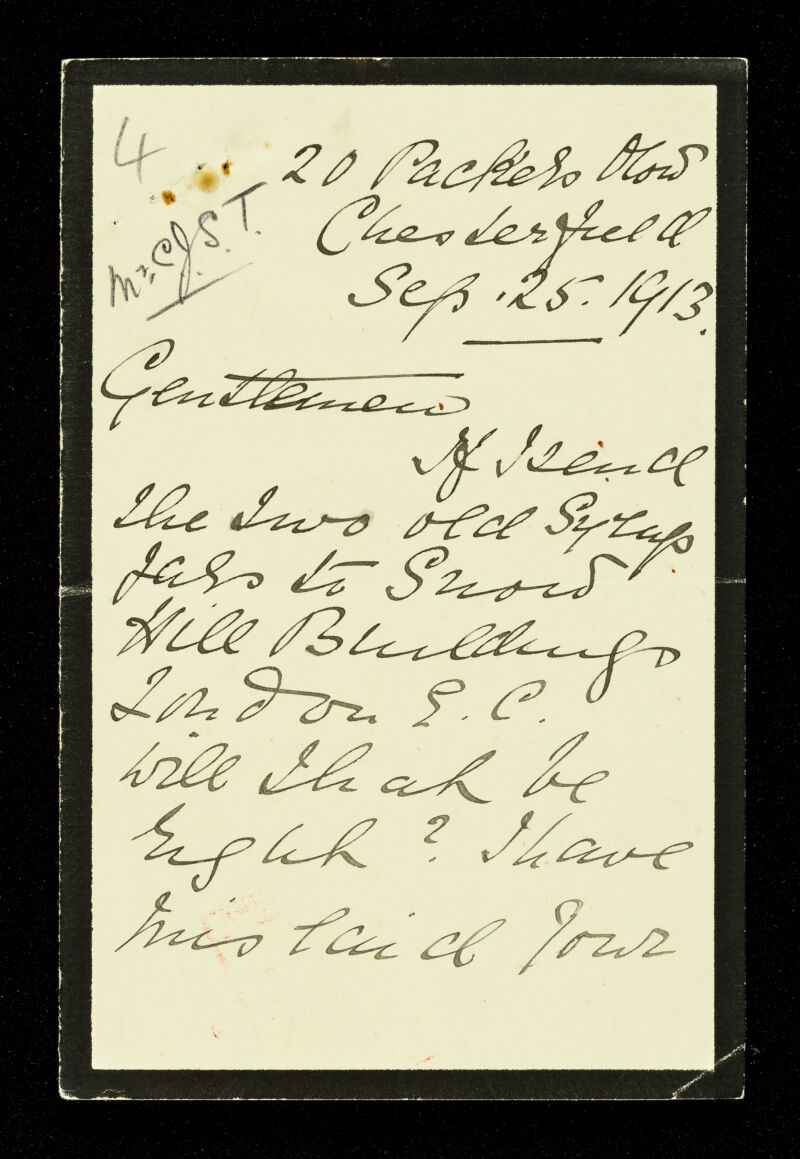 4
Mr. C.J.S.T.
20 Packers Row
Chesterfield
Sep. 25. 1913.
Gentlemen
If I send
the two old Syrup
Jars to Snow
Hill Buildings
London E. C.
will that be
right? I have
mislaid your